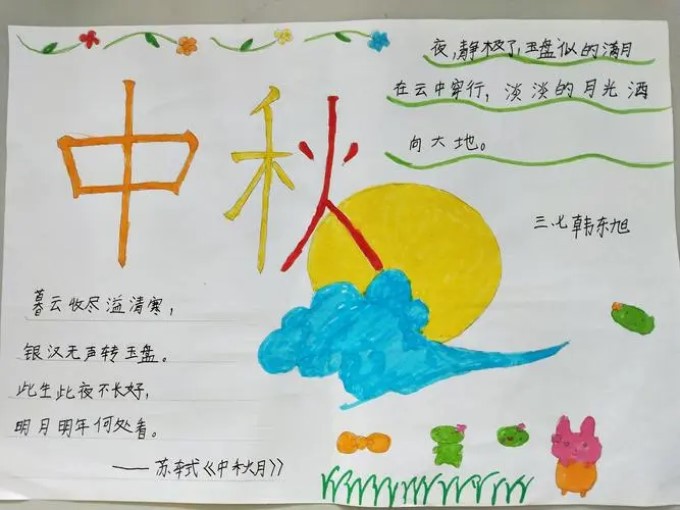 中秋
夜,静极了,玉盘似的满月
在云中穿行,淡淡的月光洒
向大地。
三.七韩东旭
暮云收尽溢清寒,
银汉无声转玉盘。
此生此夜不长好,
明月明年何处看。
——苏轼《中秋月》